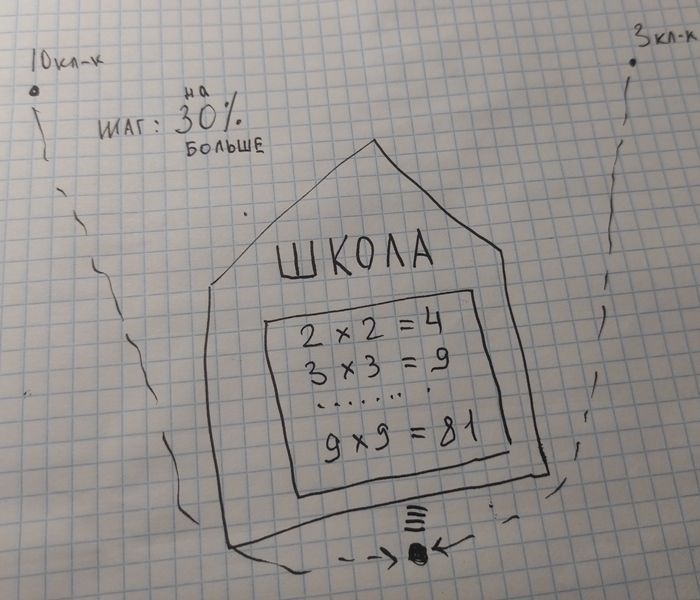 10кл-к
3кл-к
ШАГ: на 30% БОЛЬШЕ
ШКОЛА
2 × 2 = 4
3 × 3 = 9
........
9 × 9 = 81